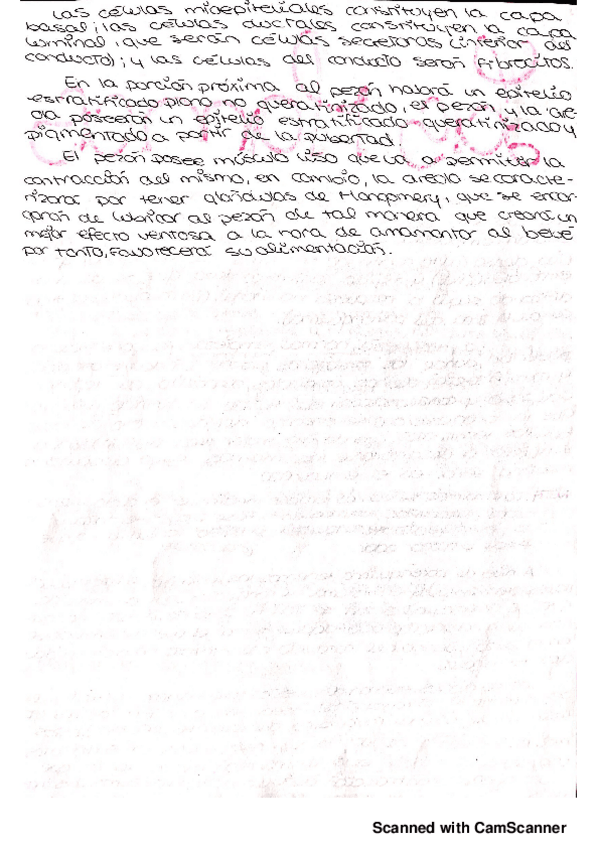 Las células mioepiteliales constituyen la capa
basal; las células ductales constituyen a capa
luminal, que serán células secretoras (interior del
conducto); y las células del conducto serán fibrocitos.
En la porción próxima al pezón habrá un epitelio
estratificado plano no queratinizado, el pezón y la aré-
ola poseerán un epitelio estratificado queratinizado y
pigmentado a partir de la pubertad.
El pezón posee músculo liso que va a permitir la
contracción del mismo, en cambio, la areola se caracte-
rizará por tener glándulas de que se encar-
garán de lubricar al pezón de tal manera que creará un
mejor efecto ventosa a la hora de amamantar al bebé
por tanto, favorecerá su alimentación.
Scanned with CamScanner